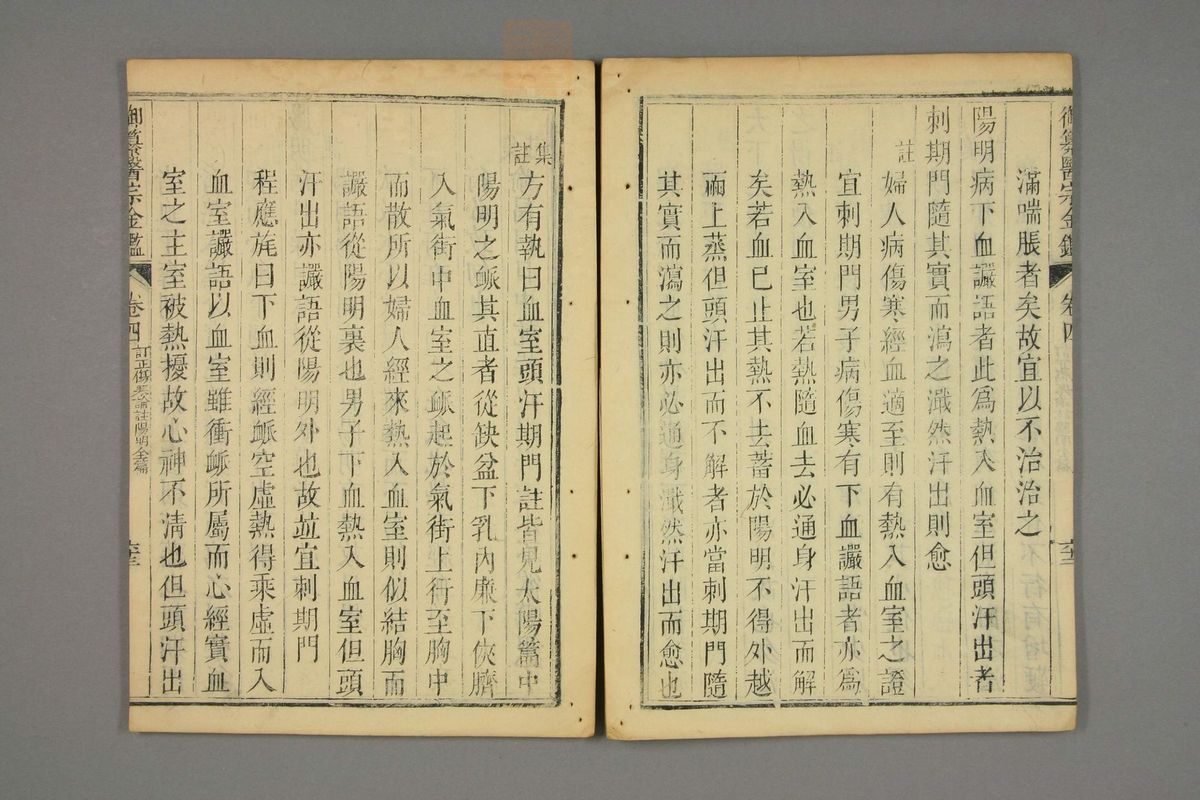 御纂醫宗金鑑 卷四
滿喘脹者矣故宜以不治治之
陽明病下血讝語者此爲熱入血室但頭汗出者
刺期門隨其實而瀉之濈然汗出則愈
註
婦人病傷寒經血適至則有熱入血室之證
宜刺期門男子病傷寒有下血讝語者亦爲
熱入血室也若熱隨血去必通身汗出而解
矣若血已止其熱不去蓄於陽明不得外越
而上蒸但頭汗出而不解者亦當刺期門隨
其實而瀉之則亦必通身濈然汗出而愈也
集註
方有執曰血室頭汗期門註皆見太陽篇中
陽明之脈其直者從缺盆下乳內廉下俠臍
入氣街中血室之脈起於氣街上行至胸中
而散所以婦人經來熱入血室則似結胸而
讝語從陽明裏也男子下血熱入血室但頭
汗出亦讝語從陽明外也故竝宜刺期門
程應旄曰下血則經脈空虛熱得乘虛而入
血室讝語以血室雖衝脈所屬而心經實血
室之主室被熱擾故心神不淸也但頭汗出
御纂醫宗金鑑 卷四 訂正傷寒論註陽明全篇